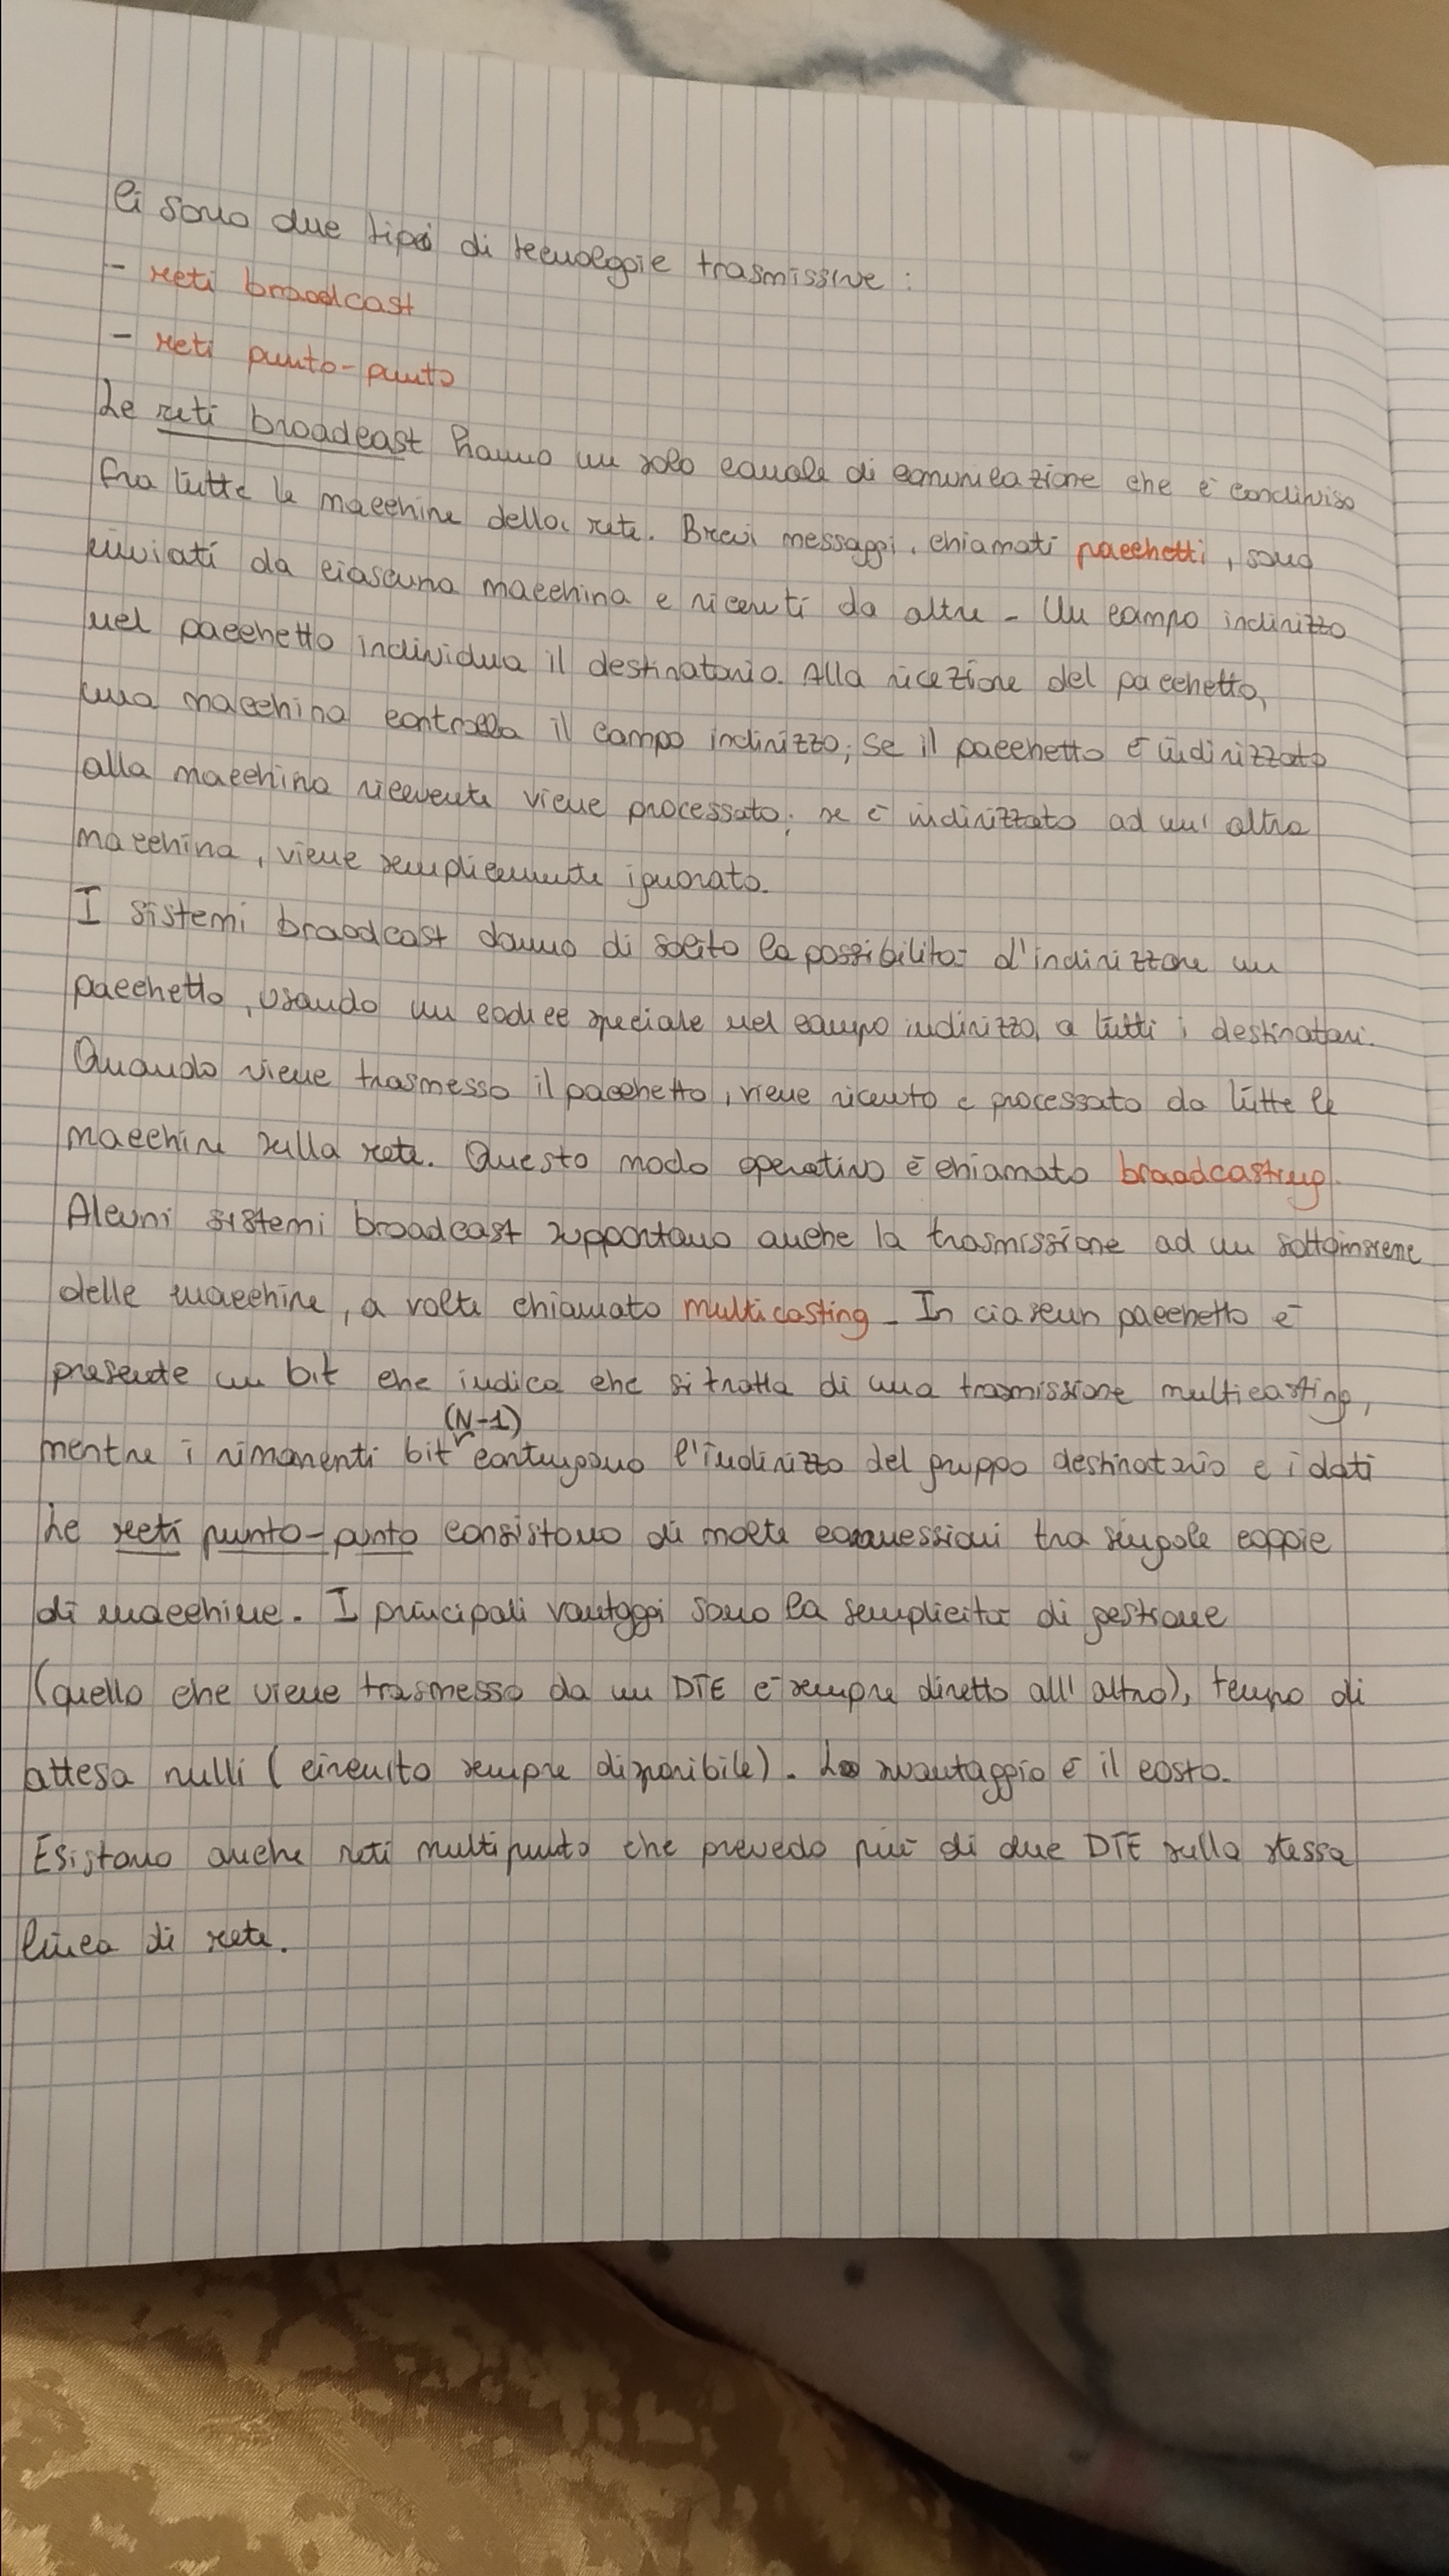 Ci sono due tipi di tecnologie trasmissive :
- reti broadcast
- reti punto-punto
Le reti broadcast hanno un solo canale di comunicazione che è condiviso
fra tutte le macchine della rete. Brevi messaggi, chiamati pacchetti, sono
inviati da ciascuna macchina e ricevuti da altre - Un campo indirizzo
nel pacchetto individua il destinatario. Alla ricezione del pacchetto,
una macchina controlla il campo indirizzo; se il pacchetto è indirizzato
alla macchina ricevente viene processato; se è indirizzato ad un'altra
macchina, viene semplicemente ignorato.
I sistemi broadcast danno di solito la possibilità d'indirizzare un
pacchetto, usando un codice speciale nel campo indirizzo, a tutti i destinatari.
Quando viene trasmesso il pacchetto, viene ricevuto e processato da tutte le
macchine sulla rete. Questo modo operativo è chiamato broadcasting.
Alcuni sistemi broadcast supportano anche la trasmissione ad un sottoinsieme
delle macchine, a volte chiamato multicasting - In ciascun pacchetto è
presente un bit che indica che si tratta di una trasmissione multicasting,
(N-1)
mentre i rimanenti bit contengono l'indirizzo del gruppo destinatario e i dati
Le reti punto-punto consistono di molte connessioni tra singole coppie
di macchine. I principali vantaggi sono la semplicità di gestione
(quello che viene trasmesso da un DTE è sempre diretto all'altro), tempo di
attesa nulli (circuito sempre disponibile). Lo svantaggio è il costo.
Esistono anche reti multipunto che prevedo più di due DTE sulla stessa
linea di rete.